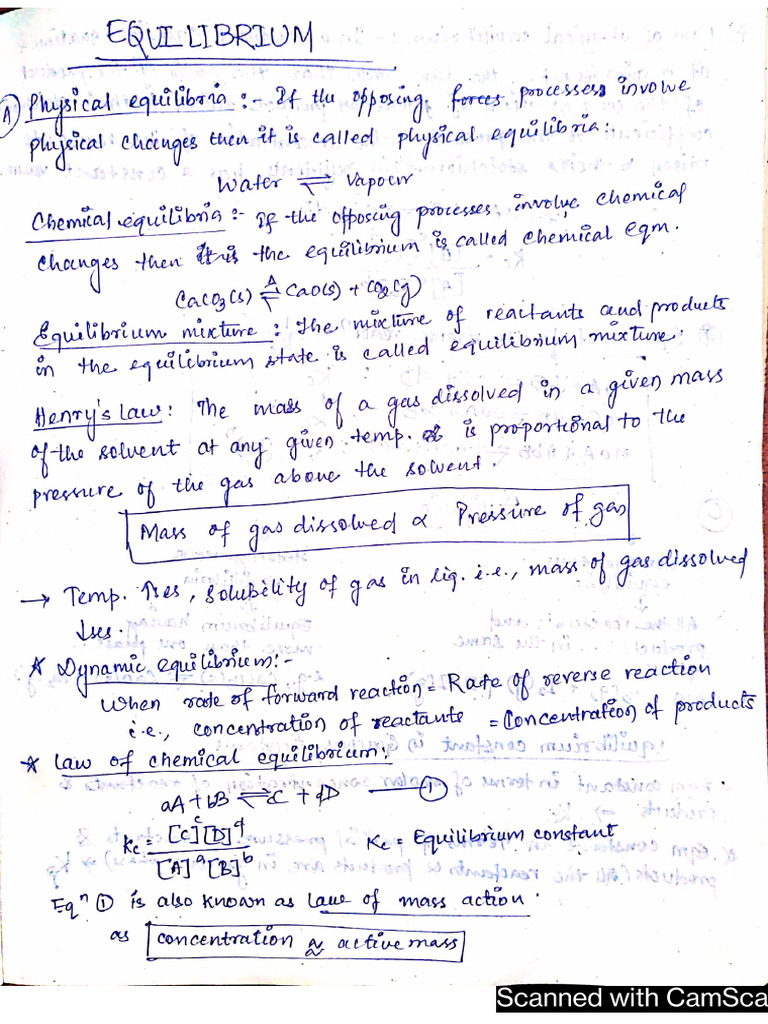 EQUILIBRIUM
(A) Physical equilibria :- If the opposing forces processess involve
physical changes then it is called physical equilibria:
Water ⇌ Vapour
Chemical equilibria :- If the opposing processes involve chemical
changes then it is the equilibrium is called chemical eqm.
CaCO3(s) ⇌Δ CaO(s) + CO2(g)
Equilibrium mixture : The mixture of reactants and products
in the equilibrium state is called equilibrium mixture.
Henry's Law : The mass of a gas dissolved in a given mass
of the solvent at any given temp. is proportional to the
pressure of the gas above the solvent.
Mass of gas dissolved ∝ Pressure of gas
→ Temp. ↑ses, solubility of gas in liq. i.e., mass of gas dissolved
↓ses.
* Dynamic equilibrium:-
When rate of forward reaction = Rate of reverse reaction
i.e., concentration of reactants = Concentration of products
* Law of chemical equilibrium:
aA + bB ⇌ cC + dD —— ①
Kc = [C]^c [D]^d / [A]^a [B]^b Kc = Equilibrium constant
Eqn ① is also known as law of mass action.
as concentration ≈ active mass
Scanned with CamSca